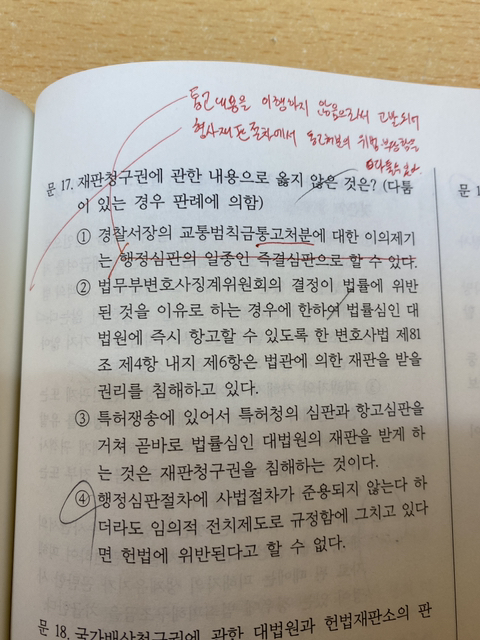 통고내용을 이행하지 않음으로써 고발되어
형사재판절차에서 통고처분의 위법 부당함을
다툴수 있다.
문 17. 재판청구권에 관한 내용으로 옳지 않은 것은? (다툼
이 있는 경우 판례에 의함)
① 경찰서장의 교통범칙금통고처분에 대한 이의제기
는 행정심판의 일종인 즉결심판으로 할 수 있다.
② 법무부변호사징계위원회의 결정이 법률에 위반
된 것을 이유로 하는 경우에 한하여 법률심인 대
법원에 즉시 항고할 수 있도록 한 변호사법 제81
조 제4항 내지 제6항은 법관에 의한 재판을 받을
권리를 침해하고 있다.
③ 특허쟁송에 있어서 특허청의 심판과 항고심판을
거쳐 곧바로 법률심인 대법원의 재판을 받게 하
는 것은 재판청구권을 침해하는 것이다.
④ 행정심판절차에 사법절차가 준용되지 않는다 하
더라도 임의적 전치제도로 규정함에 그치고 있다
면 헌법에 위반된다고 할 수 없다.
문 18. 국가배상청구권에 관한 대법원과 헌법재판소의 판
문 1